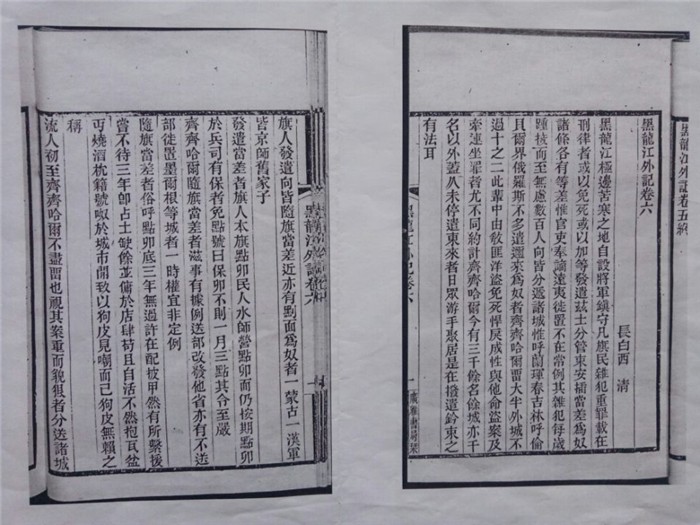 黑龍江外記卷五終
黑龍江外記卷六
長白西 清
黑龍江極邊苦寒之地自設將軍鎮守凡旗民雜犯重罪載在
刑律者或以免死或以加等發遣茲土分管束安插當差為奴
諸條各有等差惟官吏奉諭遠夷徙置不在常例其雜犯每歲
踵接而至無慮數百人向皆分遞諸城惟呼蘭琿春吉林呼倫
貝爾界俄羅斯不多遣邇來為奴者齊齊哈爾畱大半外城不
過十之二此輩中由敎匪洋盜免死悍戾成性與他命盜案及
牽連坐罪者尤不同約計齊齊哈爾今有三千餘名餘城亦千
名以外蓋久未停遣東來者日眾游手聚居是在撥遣鈐束之
有法耳
黑龍江外記卷六
一
旗人發遣向皆隨旗當差近亦有對面為奴者一蒙古一漢軍
皆京師舊家子
發遣當差者旗人本旗點卯民人水師營點卯而仍按期點卯
於兵司有保者免點號曰保卯不則一月三點其令至嚴
齊齊哈爾隨旗當差者滋事有據例送部改發他省亦有不送
部徙置墨爾根等城者一時權宜非定例
隨旗當差者俗呼點卯底三年無過許在配披甲然有所繫援
嘗不待三年卽占土缺餘並傭於店肆苟且自活不然抱瓦盆
丐燒酒枕籍號呶於城市閒致以狗皮見嘲而已狗皮無賴之
稱
流人初至齊齊哈爾不盡畱也視其案重而貌很者分送諸城